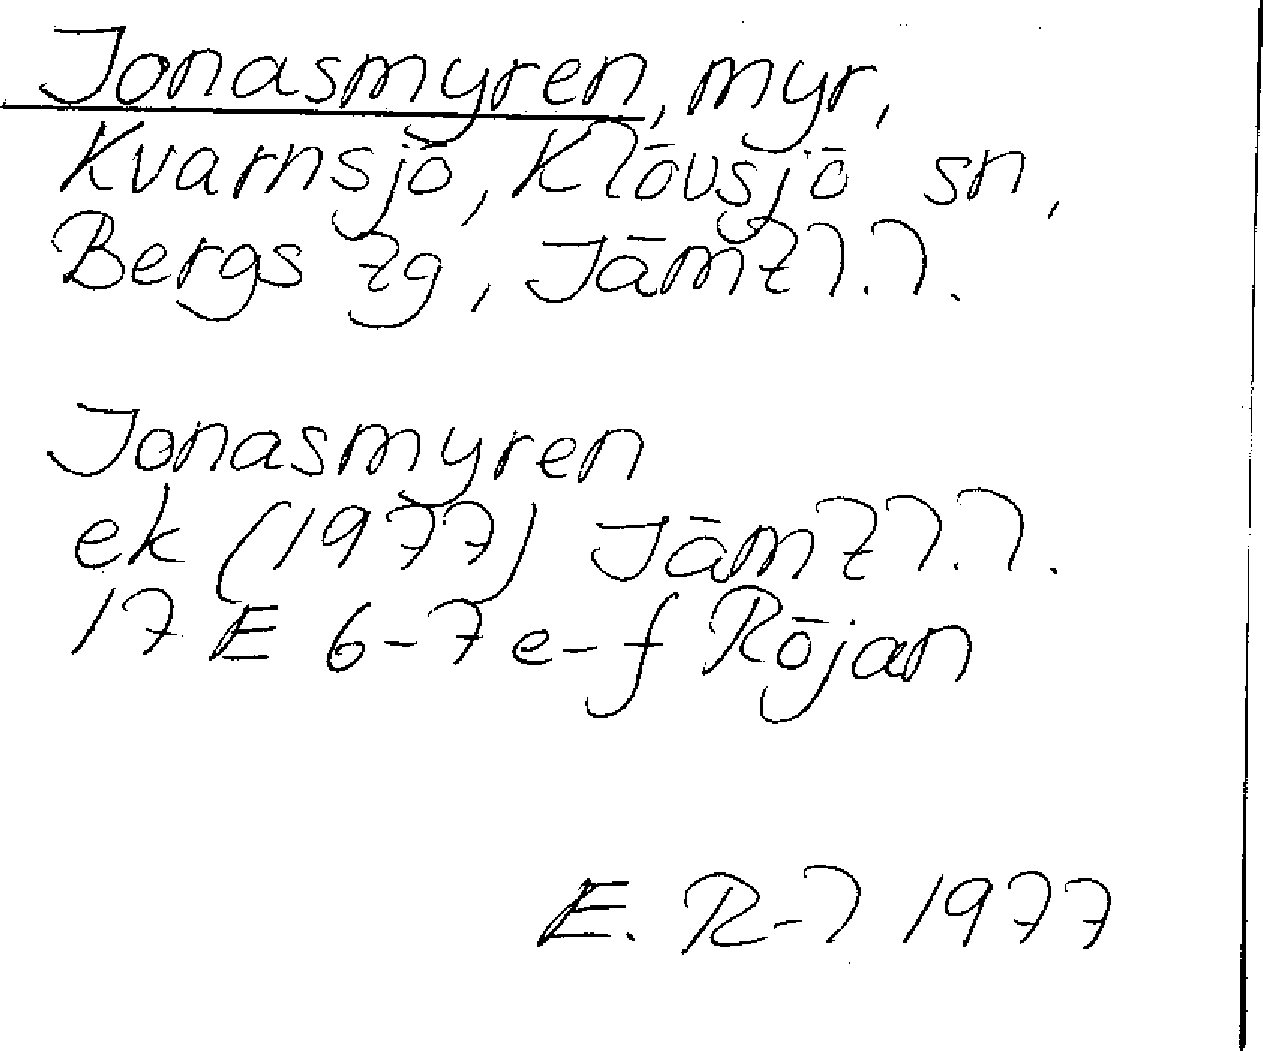 Jonasmyren, myr,
Kvarnsjö, Klövsjö sn,
Bergs tg, Jämtl.l.
Jonasmyren
ek (1977) Jämtl.l.
17 E 6-7 e-f Röjan
E. R-l 1977